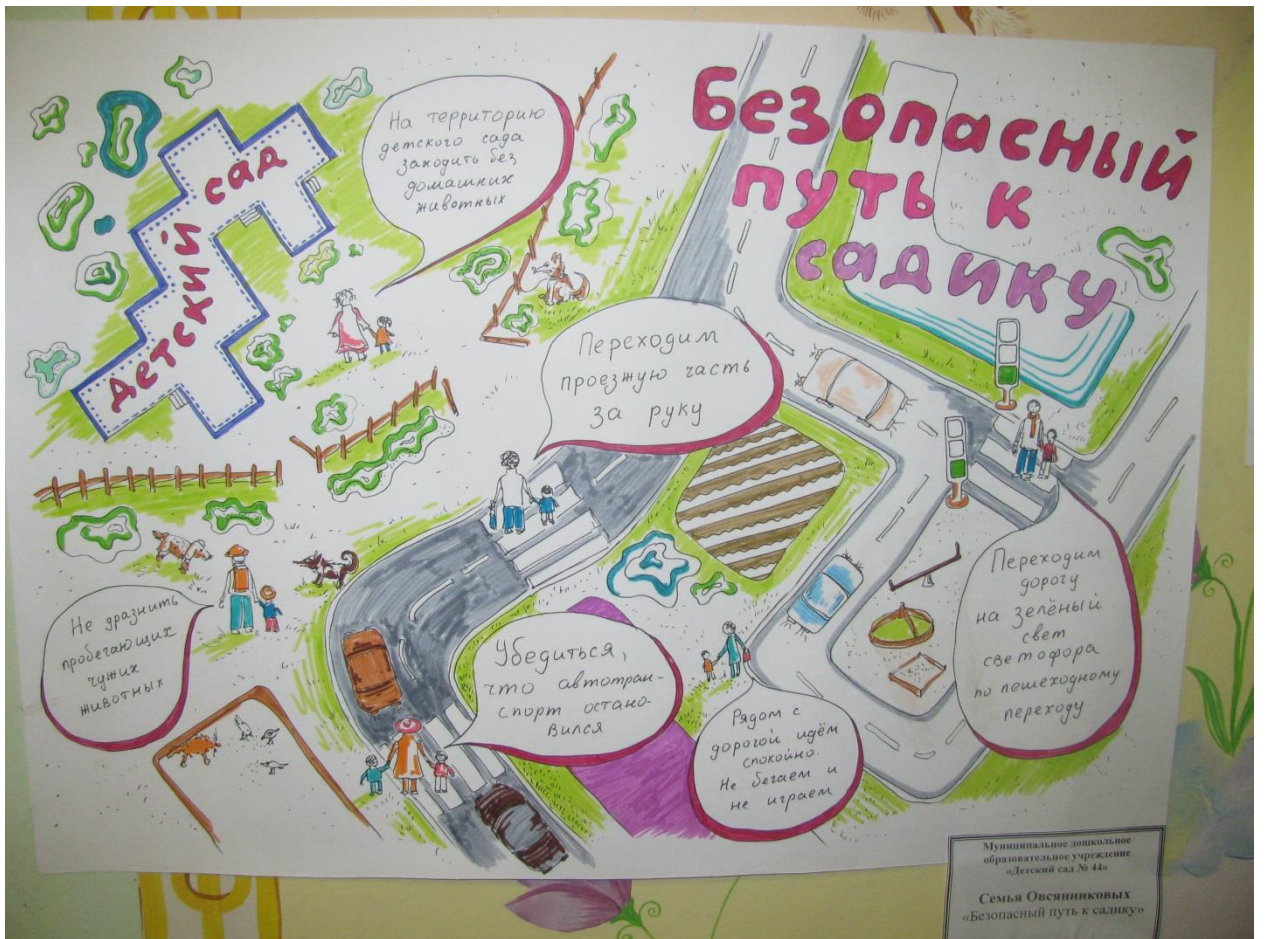 Безопасный
путь к
садику
Детский сад
На территорию
детского сада
заходить без
домашних
животных
Переходим
проезжую часть
за руку
Не дразнить
пробегающих
чужих
животных
Убедиться,
что автотран-
спорт остано-
вился
Рядом с
дорогой идём
спокойно.
Не бегаем и
не играем
Переходим
дорогу
на зелёный
свет
светофора
по пешеходному
переходу
Муниципальное дошкольное
образовательное учреждение
«Детский сад № 44»
Семья Овсянниковых
«Безопасный путь к садику»